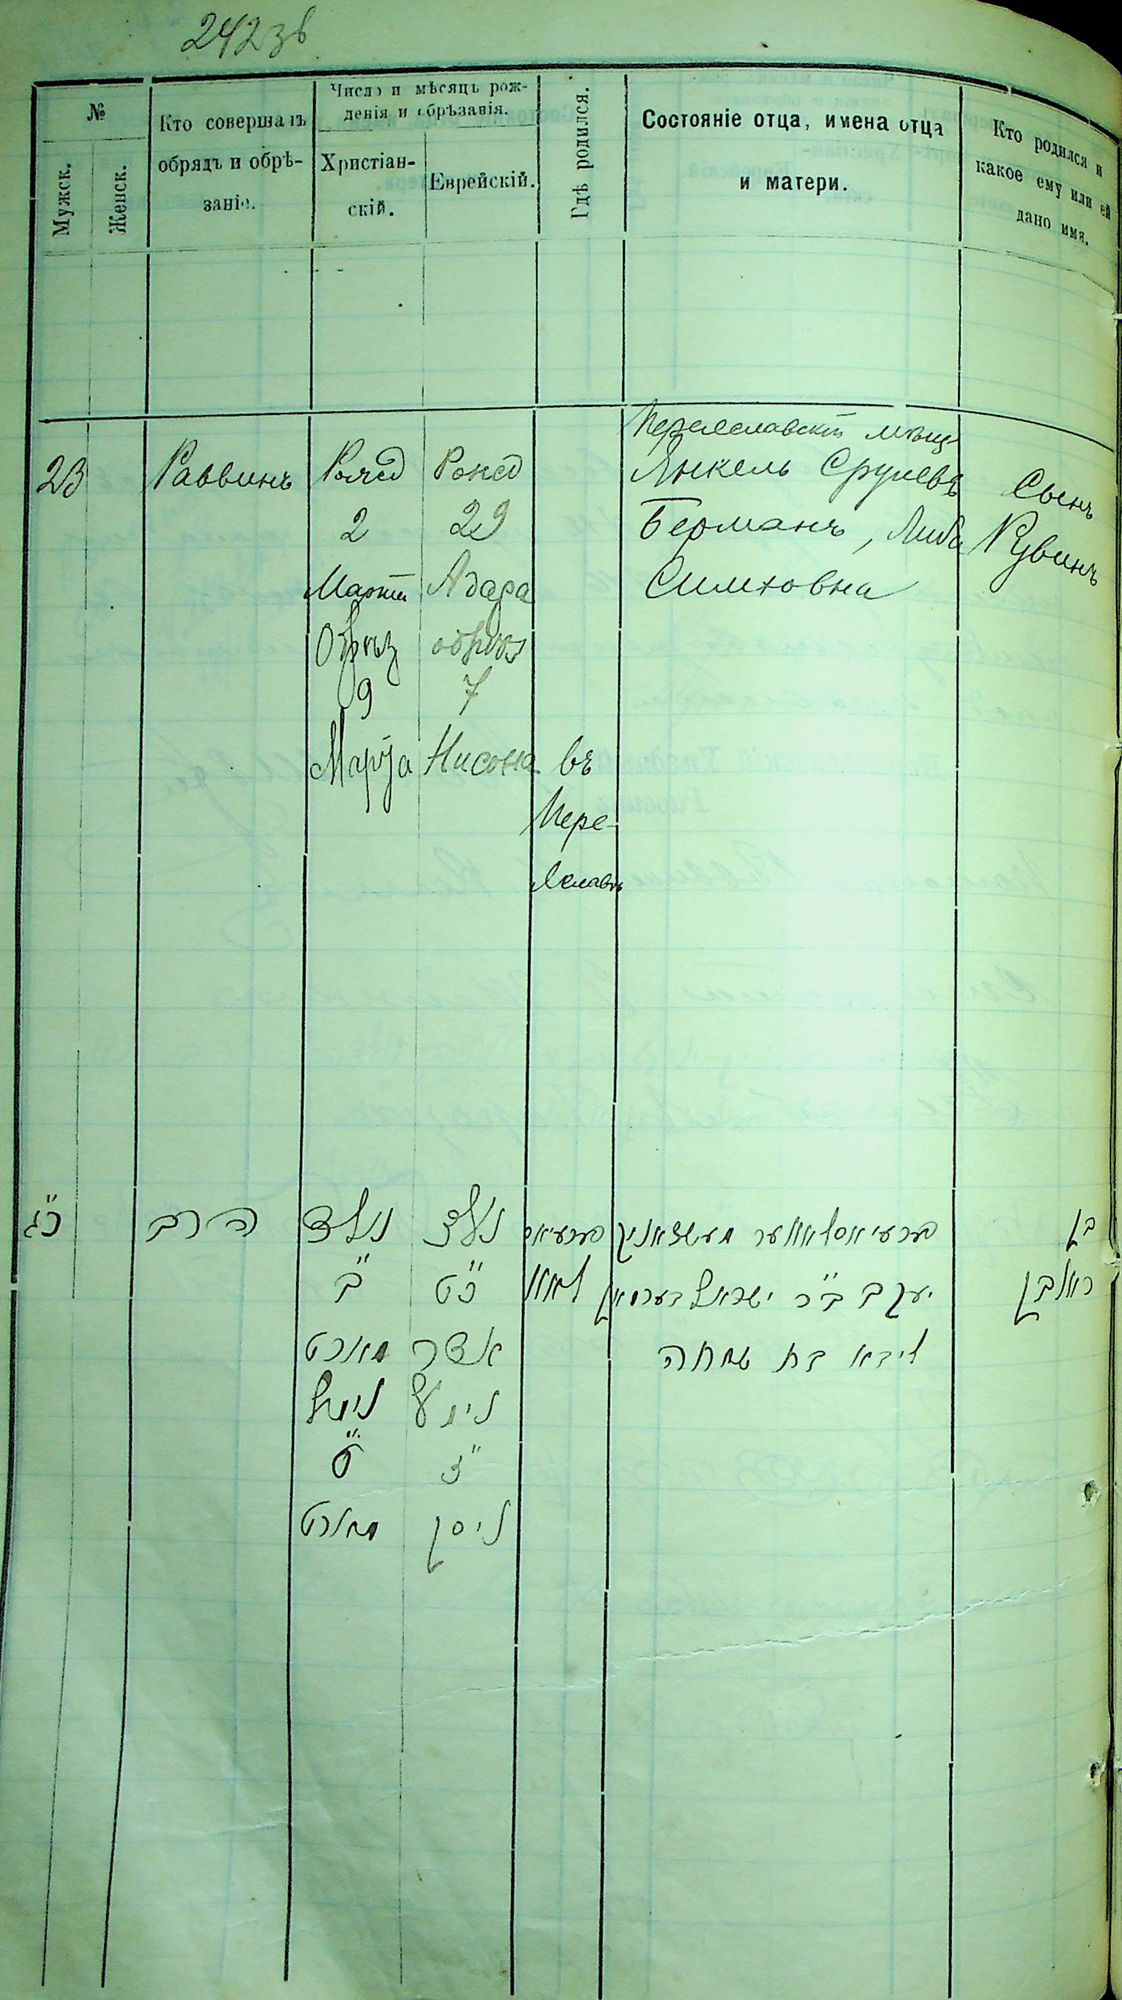 242 зв
№
Мужск.
Женск.
Кто совершалъ
обрядъ и обрѣ-
заніе.
Число и мѣсяцъ рож-
денія и обрѣзанія.
Христіан-
скій.
Еврейскій.
Гдѣ родился.
Состояніе отца, имена отца
и матери.
Кто родился и
какое ему или ей
дано имя.
23
Раввинъ
Рожд
2
Марта
Обрѣз
9
Марта
Рожд
29
Адара
обрѣз
7
Нисона
въ
Пере-
яславѣ
Переяславскій мѣщ
Янкель Срулевъ
Берманъ, Либа
Симховна
Сынъ
Рувинъ
כ״ג
הרב
נולד
ב״
מארט
נימול
ט״
מארט
נולד
כ״ט
אדר
נימול
ז״
ניסן
פערעיאס
לאוו
פערעיאסלאווער מעשצאנין
יעקב ב״ר ישראל בערמאן
ליבא בת שמחה
בן
ראובן